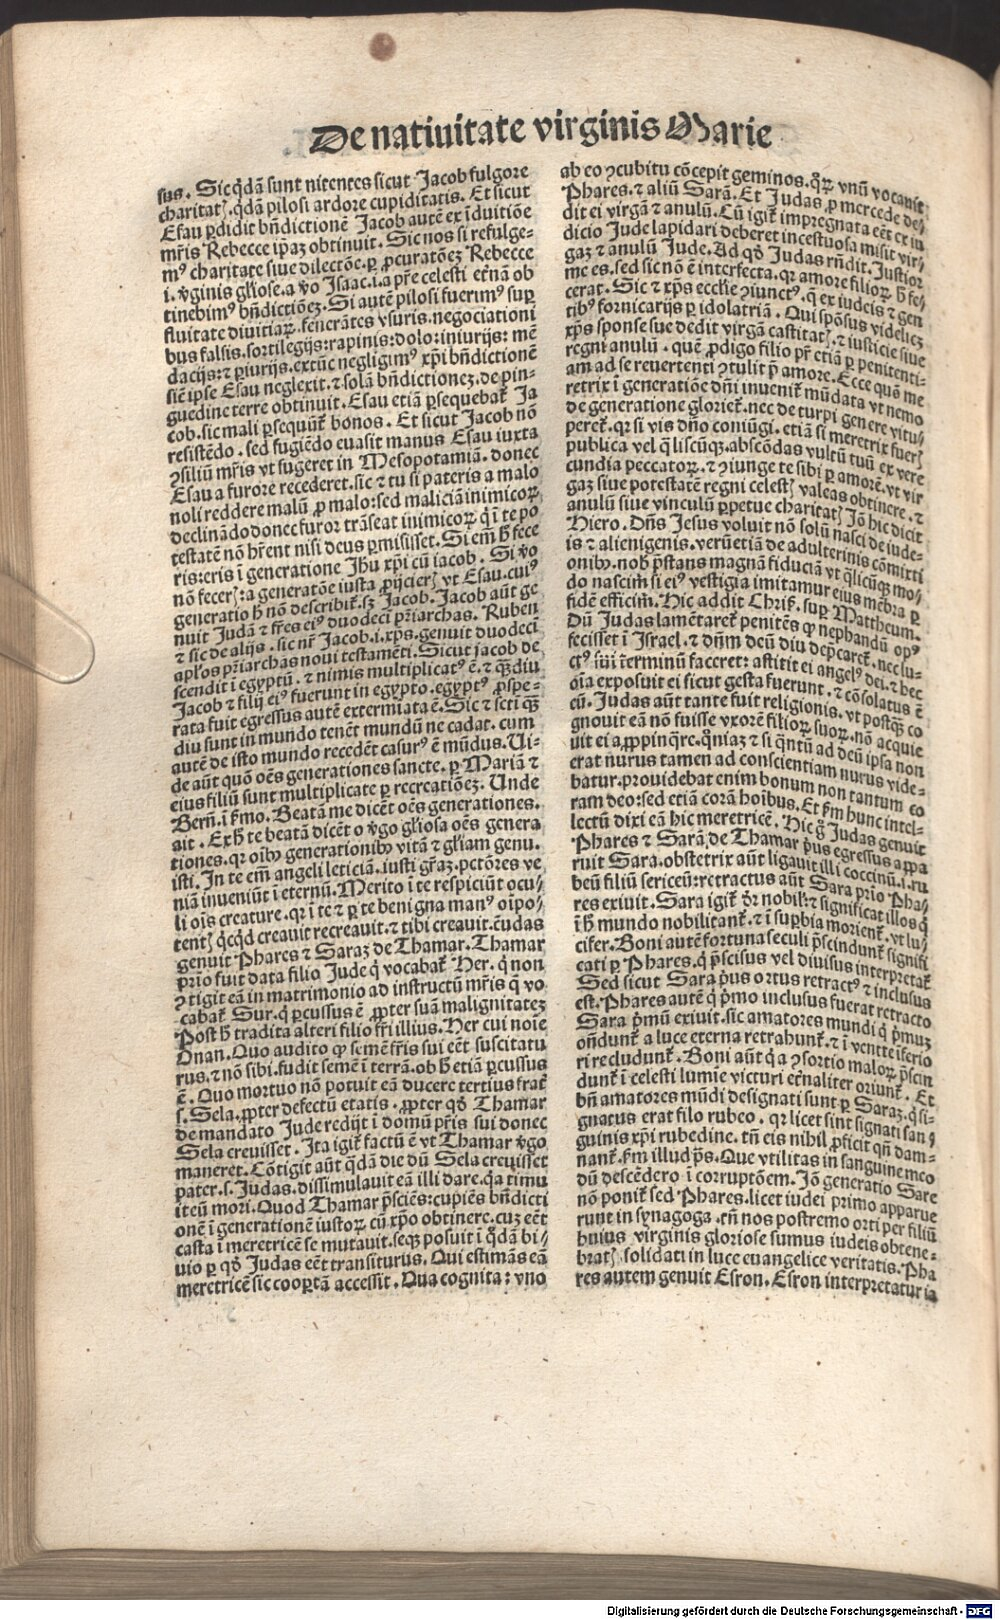 De natiuitate virginis Marie
sus. Sic q̄dā sunt nitentes sicut Jacob fulgore
charitatꝭ. q̄dā pilosi ardore cupiditatis. Et sicut
Esau ꝑdidit bn̄dictionē Jacob autē ex īduitiōe
mr̄is Rebecce ip̄az obtinuit. Sic nos si refulge-
mꝰ charitate siue dilectōe. ꝑ ꝓcuratōeꝫ Rebecce
i. v̓ginis gl̓iose. a v̓o Isaac. i. a pr̄e celesti et̓nā ob
tinebimꝰ bn̄dictiōeꝫ. Si autē pilosi fuerimꝰ suꝑ
fluitate diuitiaꝝ. fenerātes vsuris. negociationi
bus falsis. sortilegijs: rapinis: dolo: iniurijs: mē
dacijs: ⁊ ꝑiurijs. extūc negligimꝰ xp̄i bn̄dictionē
sic̄ ipse Esau neglexit. ⁊ solā bn̄dictioneꝫ. de pin-
guedine terre obtinuit. Esau etiā ꝑsequebat̄ Ja
cob. sic mali ꝑsequūt̄ bonos. Et sicut Jacob nō
resistēdo. sed fugiēdo euasit manus Esau iuxta
ꝯsiliū mr̄is vt fugeret in Mesopotamiā. donec
Esau a furore recederet. sic ⁊ tu si pateris a malo
noli reddere malū ꝓ malo: sed maliciā inimicoꝝ
declinādo donec furor trāseat inimicoꝝ q̇ ī te po
testatē nō hr̄ent nisi deus ꝑmisisset. Si em̄ h̄ fece
ris: eris ī generatione Jhū xp̄i cū iacob. Si v̓o
nō fecerꝭ: a generatōe iusta ꝓijcierꝭ vt Esau. cuiꝰ
generatio h̄ nō describit̄. sꝫ Jacob. Jacob aūt ge
nuit Judā ⁊ fr̄es eiꝰ duodecī pr̄iarchas. Ruben
⁊ sic de alijs. sic nr̄ Jacob. i. xp̄s. genuit duodecī
apl̓os pr̄iarchas noui testamēti. Sicut jacob de
scendit ī egyptū. ⁊ nimis multiplicatꝰ ē. ⁊ q̄ꝫdiu
Jacob ⁊ filij eiꝰ fuerunt in egypto. egyptꝰ ꝓspe-
rata fuit egressus autē extermīata ē. Sic ⁊ sc̄ti q̄ꝫ
diu sunt in mundo tenēt mundū ne cadat. cum
autē de isto mundo recedēt casurꝰ ē mūdus. Ui-
de aūt quō oēs generationes sancte. ꝑ Mariā ⁊
eius filiū sunt multiplicate ꝑ recreatiōeꝫ. Unde
Bern̄. ī ẜmo. Beatā me dicēt oēs generationes.
ait. Ex h̄ te beatā dicēt o v̓go gl̓iosa oēs genera
tiones. qꝛ oībꝰ generationibꝰ vitā ⁊ gl̓iam genu.
isti. In te em̄ angeli leticiā. iusti gr̄aꝫ. pct̄ōres ve
niā inueniūt ī eternū. Merito ī te respiciūt ocu/
li oīs creature. qꝛ ī te ⁊ ꝑ te benigna manꝰ oīpo/
tentꝭ q̇cq̇d creauit recreauit. ⁊ tibi creauit. Judas
genuit Phares ⁊ Saraꝫ de Thamar. Thamar
prīo fuit data filio Jude q̇ vocabat̄ Her. q̇ non
ꝯtigit eā in matrimonio ad instructū mr̄is q̄ vo
cabat̄ Sur. q̇ ꝑcussus ē ꝓpter suā malignitateꝫ
Post h̄ tradita alteri filio fr̄i illius. Her cui noīe
Onan. Quo audito ꝙ semē fr̄is sui eēt suscitatu
rus. ⁊ nō sibi. fudit semē ī terrā. ob h̄ etiā ꝑcussus
ē. Quo mortuo nō potuit eā ducere tertius frat̄
s. Sela. ꝓpter defectū etatis. ꝓpter qd̓ Thamar
de mandato Jude redijt ī domū pr̄is sui donec
Sela creuisset. Ita igit̄ factū ē vt Thamar v̓go
maneret. Cōtigit aūt q̄dā die dū Sela creuisset
pater. s. Judas. dissimulauit eā illi dare. q̇a timu
it eū mori. Quod Thamar p̄sciēs: cupiēs bn̄dicti
onē ī generationē iustoꝝ cū xp̄o obtinere. cuꝫ eēt
casta ī meretricē se mutauit. seqꝫ posuit ī q̄dā bi/
uio ꝑ qd̓ Judas eēt transiturus. Qui estimās eā
meretricē sic cooꝑtā accessit. Qua cognita: vno
ab eo ꝯcubitu cōcepit geminos. qꝝ vnū vocauit
Phares. ⁊ aliū Sarā. Et Judas ꝓ mercede de/
dit ei virgā ⁊ anulū. Cū igit̄ impregnata eēt ex iu
dicio Jude lapidari deberet incestuosa misit vir/
gaꝫ ⁊ anulū Jude. Ad qd̓ Judas rn̄dit. Justior
me es. sed sic nō ē interfecta. qꝛ amore filioꝝ h̄ fe/
cerat. Sic ⁊ xp̄s eccl̓ie ꝯiunctꝰ. q̄ ex iudeis ⁊ gen
tibꝰ fornicarijs ꝑ idolatriā. Qui spōsus videlicꝫ
xp̄s sponse sue dedit virgā castitatꝭ. ⁊ iusticie siue
regni anulū. quē ꝓdigo filio pr̄ etiā ꝑ penitenti-
am ad se reuertenti ꝯtulit p̄ amore. Ecce quō me
retrix ī generatiōe dn̄i inuenit̄ mūdata vt nemo
de generatione gloriet̄. nec de turpi genere vitu/
peret̄. qꝛ si vis dn̄o coniūgi. etiā si meretrix fuerꝭ
publica vel q̄liscūqꝫ. abscōdas vultū tuū ex vere
cundia peccatoꝝ. ⁊ ꝯiunge te sibi ꝑ amorē. vt vir
gaꝫ siue potestatē regni celestꝭ valeas obtinere. ⁊
anulū siue vinculū ꝑpetue charitatꝭ Jō hic dicit
Hiero. Dn̄s Jesus voluit nō solū nasci de iude-
is ⁊ alienigenis. verū etiā de adulterinis cōmixti
onibꝰ. nob̓ p̄stans magnā fiduciā vt q̄licūqꝫ mo/
do nascim̄ si eiꝰ vestigia imitamur eius mēbra ꝑ
fidē efficim̄. Hic addit Chris̄. suꝑ Mattheum.
Dū Judas lamētaret̄ penitēs ꝙ nephandū opꝰ
fecisset ī Israel. ⁊ dn̄m deū diu dep̄caret̄. nec lu-
ctꝰ sui terminū faceret: astitit ei angelꝰ dei. ⁊ hec
oīa exposuit ei sicut gesta fuerunt. ⁊ cōsolatus ē
eū. Judas aūt tante fuit religionis. vt postq̄ꝫ co
gnouit eā nō fuisse vxorē filioꝝ suoꝝ. nō acquie
uit ei appropinq̄re. qm̄ ⁊ si q̄ntū ad deū ipsa non
erat nurus tamen ad conscientiam nurus vide-
batur. prouidebat enim bonum non tantum co
ram deo: sed etiā corā hoībus. Et ẜm hunc intel-
lectū dixi eā hic meretricē. Hic g̊ Judas genuit
Phares ⁊ Sarā de Thamar p̓us egressus appa
ruit Sara. obstetrix aūt ligauit illi coccinū. i. ru
beū filiū sericeū: retractus aūt Sara prīo Pha/
res exiuit. Sara igit̄ dr̄ nobil̓: ⁊ significat illos q̇
ī h̄ mundo nobilitant̄. ⁊ ī suꝑbia morient̄. vt lu/
cifer. Boni autē fortuna seculi p̄scindunt̄ signifi
cati ꝑ Phares. q̇ p̄scisus vel diuisus interpretat̄
Sed sicut Sara p̓us ortus retractꝰ ⁊ inclusus
est. Phares autē q̇ p̓mo inclusus fuerat retracto
Sara p̓mū exiuit. sic amatores mundi q̇ p̓muꝫ
on̄dunt̄ a luce eterna retrahunt̄. ⁊ ī ventre iferio
ri recludunt̄. Boni aūt q̇ a ꝯsortio maloꝝ p̄scin
dunt̄ ī celesti lumīe victuri et̓naliter oriunt̄. Et
bn̄ amatores mūdi designati sunt ꝑ Saraꝫ. q̇ si-
gnatus erat filo rubeo. qꝛ licet sint signati san ꝯ
guinis xp̄i rubedine. tn̄ eis nihil ꝓficit qn̄ dam-
nant̄. ẜm illud p̄s. Que vtilitas in sanguine meo
dū descēdero ī corruptōem. Jō generatio Sare
nō ponit̄ sed Phares. licet iudei primo apparue
runt in synagoga. tn̄ nos postremo orti per filiū
huius virginis gloriose sumus iudeis obtene-
bratꝭ. solidati in luce euangelice veritatis. Pha
res autem genuit Esron. Esron interp̄tatur ia
Digitalisierung gefördert durch die Deutsche Forschungsgemeinschaft - DFG